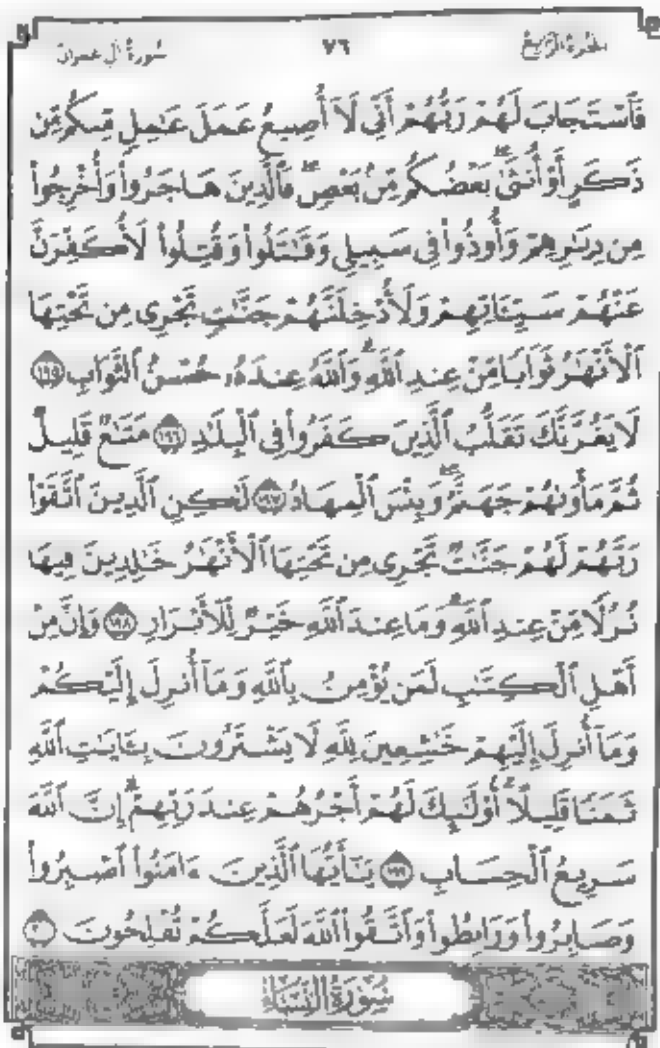 الجزء الرابع ٧٦ سورة آل عمران
فَٱسْتَجَابَ لَهُمْ رَبُّهُمْ أَنِّي لَآ أُضِيعُ عَمَلَ عَٰمِلٍ مِّنكُم مِّن
ذَكَرٍ أَوْ أُنثَىٰ بَعْضُكُم مِّنۢ بَعْضٍ فَٱلَّذِينَ هَاجَرُوا۟ وَأُخْرِجُوا۟
مِن دِيَٰرِهِمْ وَأُوذُوا۟ فِي سَبِيلِي وَقَٰتَلُوا۟ وَقُتِلُوا۟ لَأُكَفِّرَنَّ
عَنْهُمْ سَيِّـَٔاتِهِمْ وَلَأُدْخِلَنَّهُمْ جَنَّٰتٍ تَجْرِي مِن تَحْتِهَا
ٱلْأَنْهَٰرُ ثَوَابًا مِّنْ عِندِ ٱللَّهِ وَٱللَّهُ عِندَهُۥ حُسْنُ ٱلثَّوَابِ ١٩٥
لَا يَغُرَّنَّكَ تَقَلُّبُ ٱلَّذِينَ كَفَرُوا۟ فِي ٱلْبِلَٰدِ ١٩٦ مَتَٰعٌ قَلِيلٌ
ثُمَّ مَأْوَىٰهُمْ جَهَنَّمُ وَبِئْسَ ٱلْمِهَادُ ١٩٧ لَٰكِنِ ٱلَّذِينَ ٱتَّقَوْا۟
رَبَّهُمْ لَهُمْ جَنَّٰتٌ تَجْرِي مِن تَحْتِهَا ٱلْأَنْهَٰرُ خَٰلِدِينَ فِيهَا
نُزُلًا مِّنْ عِندِ ٱللَّهِ وَمَا عِندَ ٱللَّهِ خَيْرٌ لِّلْأَبْرَارِ ١٩٨ وَإِنَّ مِنْ
أَهْلِ ٱلْكِتَٰبِ لَمَن يُؤْمِنُ بِٱللَّهِ وَمَآ أُنزِلَ إِلَيْكُمْ
وَمَآ أُنزِلَ إِلَيْهِمْ خَٰشِعِينَ لِلَّهِ لَا يَشْتَرُونَ بِـَٔايَٰتِ ٱللَّهِ
ثَمَنًا قَلِيلًا أُو۟لَٰٓئِكَ لَهُمْ أَجْرُهُمْ عِندَ رَبِّهِمْ إِنَّ ٱللَّهَ
سَرِيعُ ٱلْحِسَابِ ١٩٩ يَٰٓأَيُّهَا ٱلَّذِينَ ءَامَنُوا۟ ٱصْبِرُوا۟
وَصَابِرُوا۟ وَرَابِطُوا۟ وَٱتَّقُوا۟ ٱللَّهَ لَعَلَّكُمْ تُفْلِحُونَ ٢٠٠
سُورَةُ النِّسَاءِ